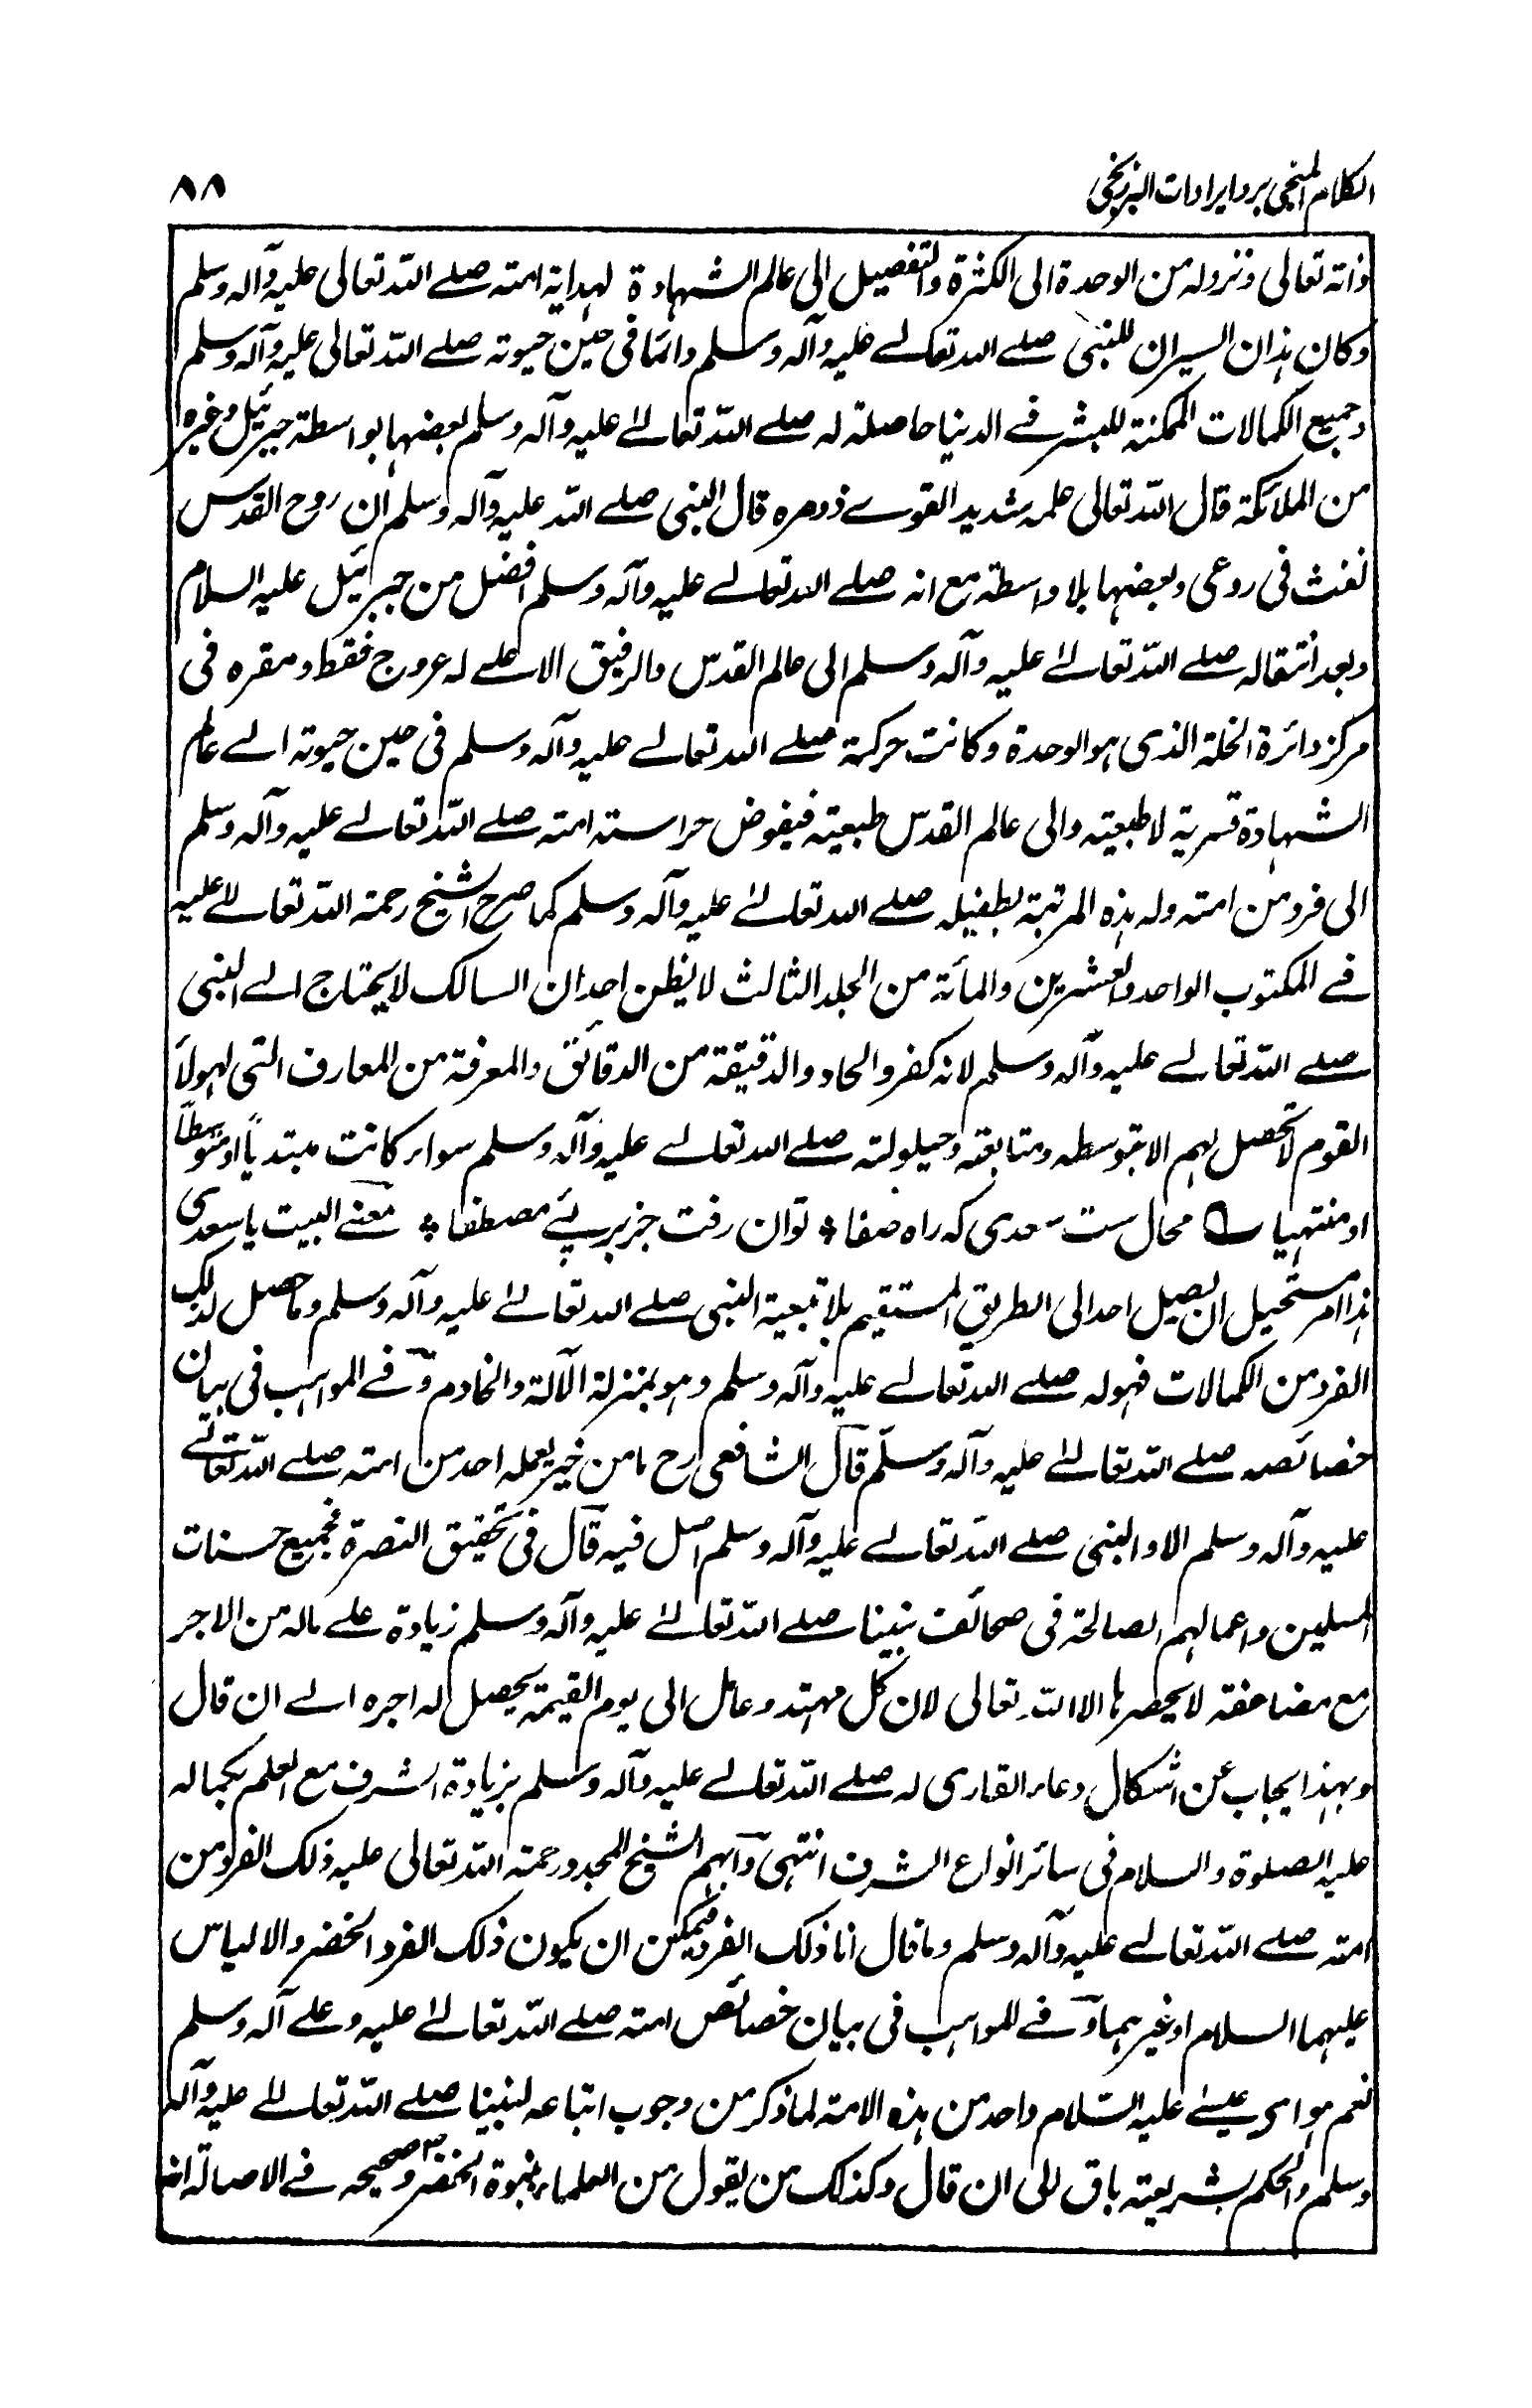 الكلام المنجي برد ايرادات البرزنجي
٨٨
ذاته تعالى ونزوله من الوحدة الى الكثرة والتفصيل الى عالم الشهادة لهداية امته صلے اللّه تعالى عليه وآله وسلم
وكان هذان السيران للنبي صلے الله تعالے عليه وآله وسلم دائما فى حين حيوته صلے اللّه تعالى عليه وآله وسلم
وجميع الكمالات الممكنة للبشر فے الدنيا حاصلة له صلے اللّه تعالے عليه وآله وسلم بعضها بواسطة جبرئيل وغيره
من الملائكة قال اللّه تعالى علمه شديد القوے ذو مره قال النبى صلے اللّه عليه وآله وسلم ان روح القدس
نفث فى روعى وبعضها بلا واسطة مع انه صلے الله تعالے عليه وآله وسلم افضل من جبرئيل عليه السلام
وبعد انتقاله صلے اللّه تعالے عليه وآله وسلم الى عالم القدس والرفيق الاعلے له عروج فقط ومقره فى
مركز دائرة الخلة الذى هو الوحدة وكانت حركة صلے الله تعالے عليه وآله وسلم فى حين حيوته الے عالم
الشهادة قسرية لا طبعيته والى عالم القدس طبعيته فيفوض حراسته امته صلے اللّه تعالے عليه وآله وسلم
الى فرد من امته وله هذه المرتبة بطفيله صلے الله تعالے عليه وآله وسلم كما صرح الشيخ رحمة اللّه تعالے عليه
فے المكتوب الواحد والعشرين والمأئة من الجلد الثالث لا يظن احد ان السالك لا يحتاج الے النبى
صلے اللّه تعالے عليه وآله وسلم لانه كفر والحاد والدقيقة من الدقائق والمعرفة من المعارف التى لهولآ
القوم لا تحصل لهم الا بتوسطه ومتابعته وحيلولته صلے الله تعالے عليه وآله وسلم سواء كانت مبتدياً او متوسطاً
او منتهيا ؎ محال ست سعدى كه راه صفا * توان رفت جز بر پے مصطفا * معنے البيت يا سعدى
هذا امر مستحيل ان يصل احد الى الطريق المستقيم بلا تبعية النبى صلے الله تعالے عليه وآله وسلم وما حصل لذلك
الفرد من الكمالات فهو له صلے الله تعالے عليه وآله وسلم وهو بمنزلة الآلة والخادم وفے المواهب فى بيان
خصائصه صلے اللّه تعالے عليه وآله وسلم قال الشافعى رح ما من خير يعمله احد من امته صلے اللّه تعالے
عليه وآله وسلم الا والنبى صلے اللّه تعالے عليه وآله وسلم اصل فيه قال فى تحقيق النصرة فجميع حسنات
المسلين واعمالهم الصالحة فى صحائف نبينا صلے اللّه تعالے عليه وآله وسلم زيادة علے ماله من الاجر
مع مضاعفة لا يحصرها الا اللّه تعالى لان كل مهتد وعامل الى يوم القيمة يحصل له اجره الے ان قال
وبهذا يجاب عن اشكال دعاء القارى له صلے اللّه تعالے عليه وآله وسلم بزيادة الشرف مع العلم بكماله
عليه الصلوة والسلام فى سائر انواع الشرف انتهى وابهم الشيخ المجدد رحمة اللّه تعالى عليه ذلك الفرد من
امته صلے اللّه تعالے عليه وآله وسلم وما قال انا ذلك الفرد فيمكن ان يكون ذلك الفرد الخضر والالياس
عليهما السلام او غيرهما وفے المواهب فى بيان خصائص امته صلے اللّه تعالے عليه وعلے آله وسلم
نعم هو اى عيسے عليه السّلام واحد من هذه الامة لما ذكر من وجوب اتباعه لنبينا صلے اللّه تعالے عليه وآله
وسلم والحكم بشريعته باق الى ان قال وكذلك من يقول من العلماء بنبوة الخضر فے الاصالة